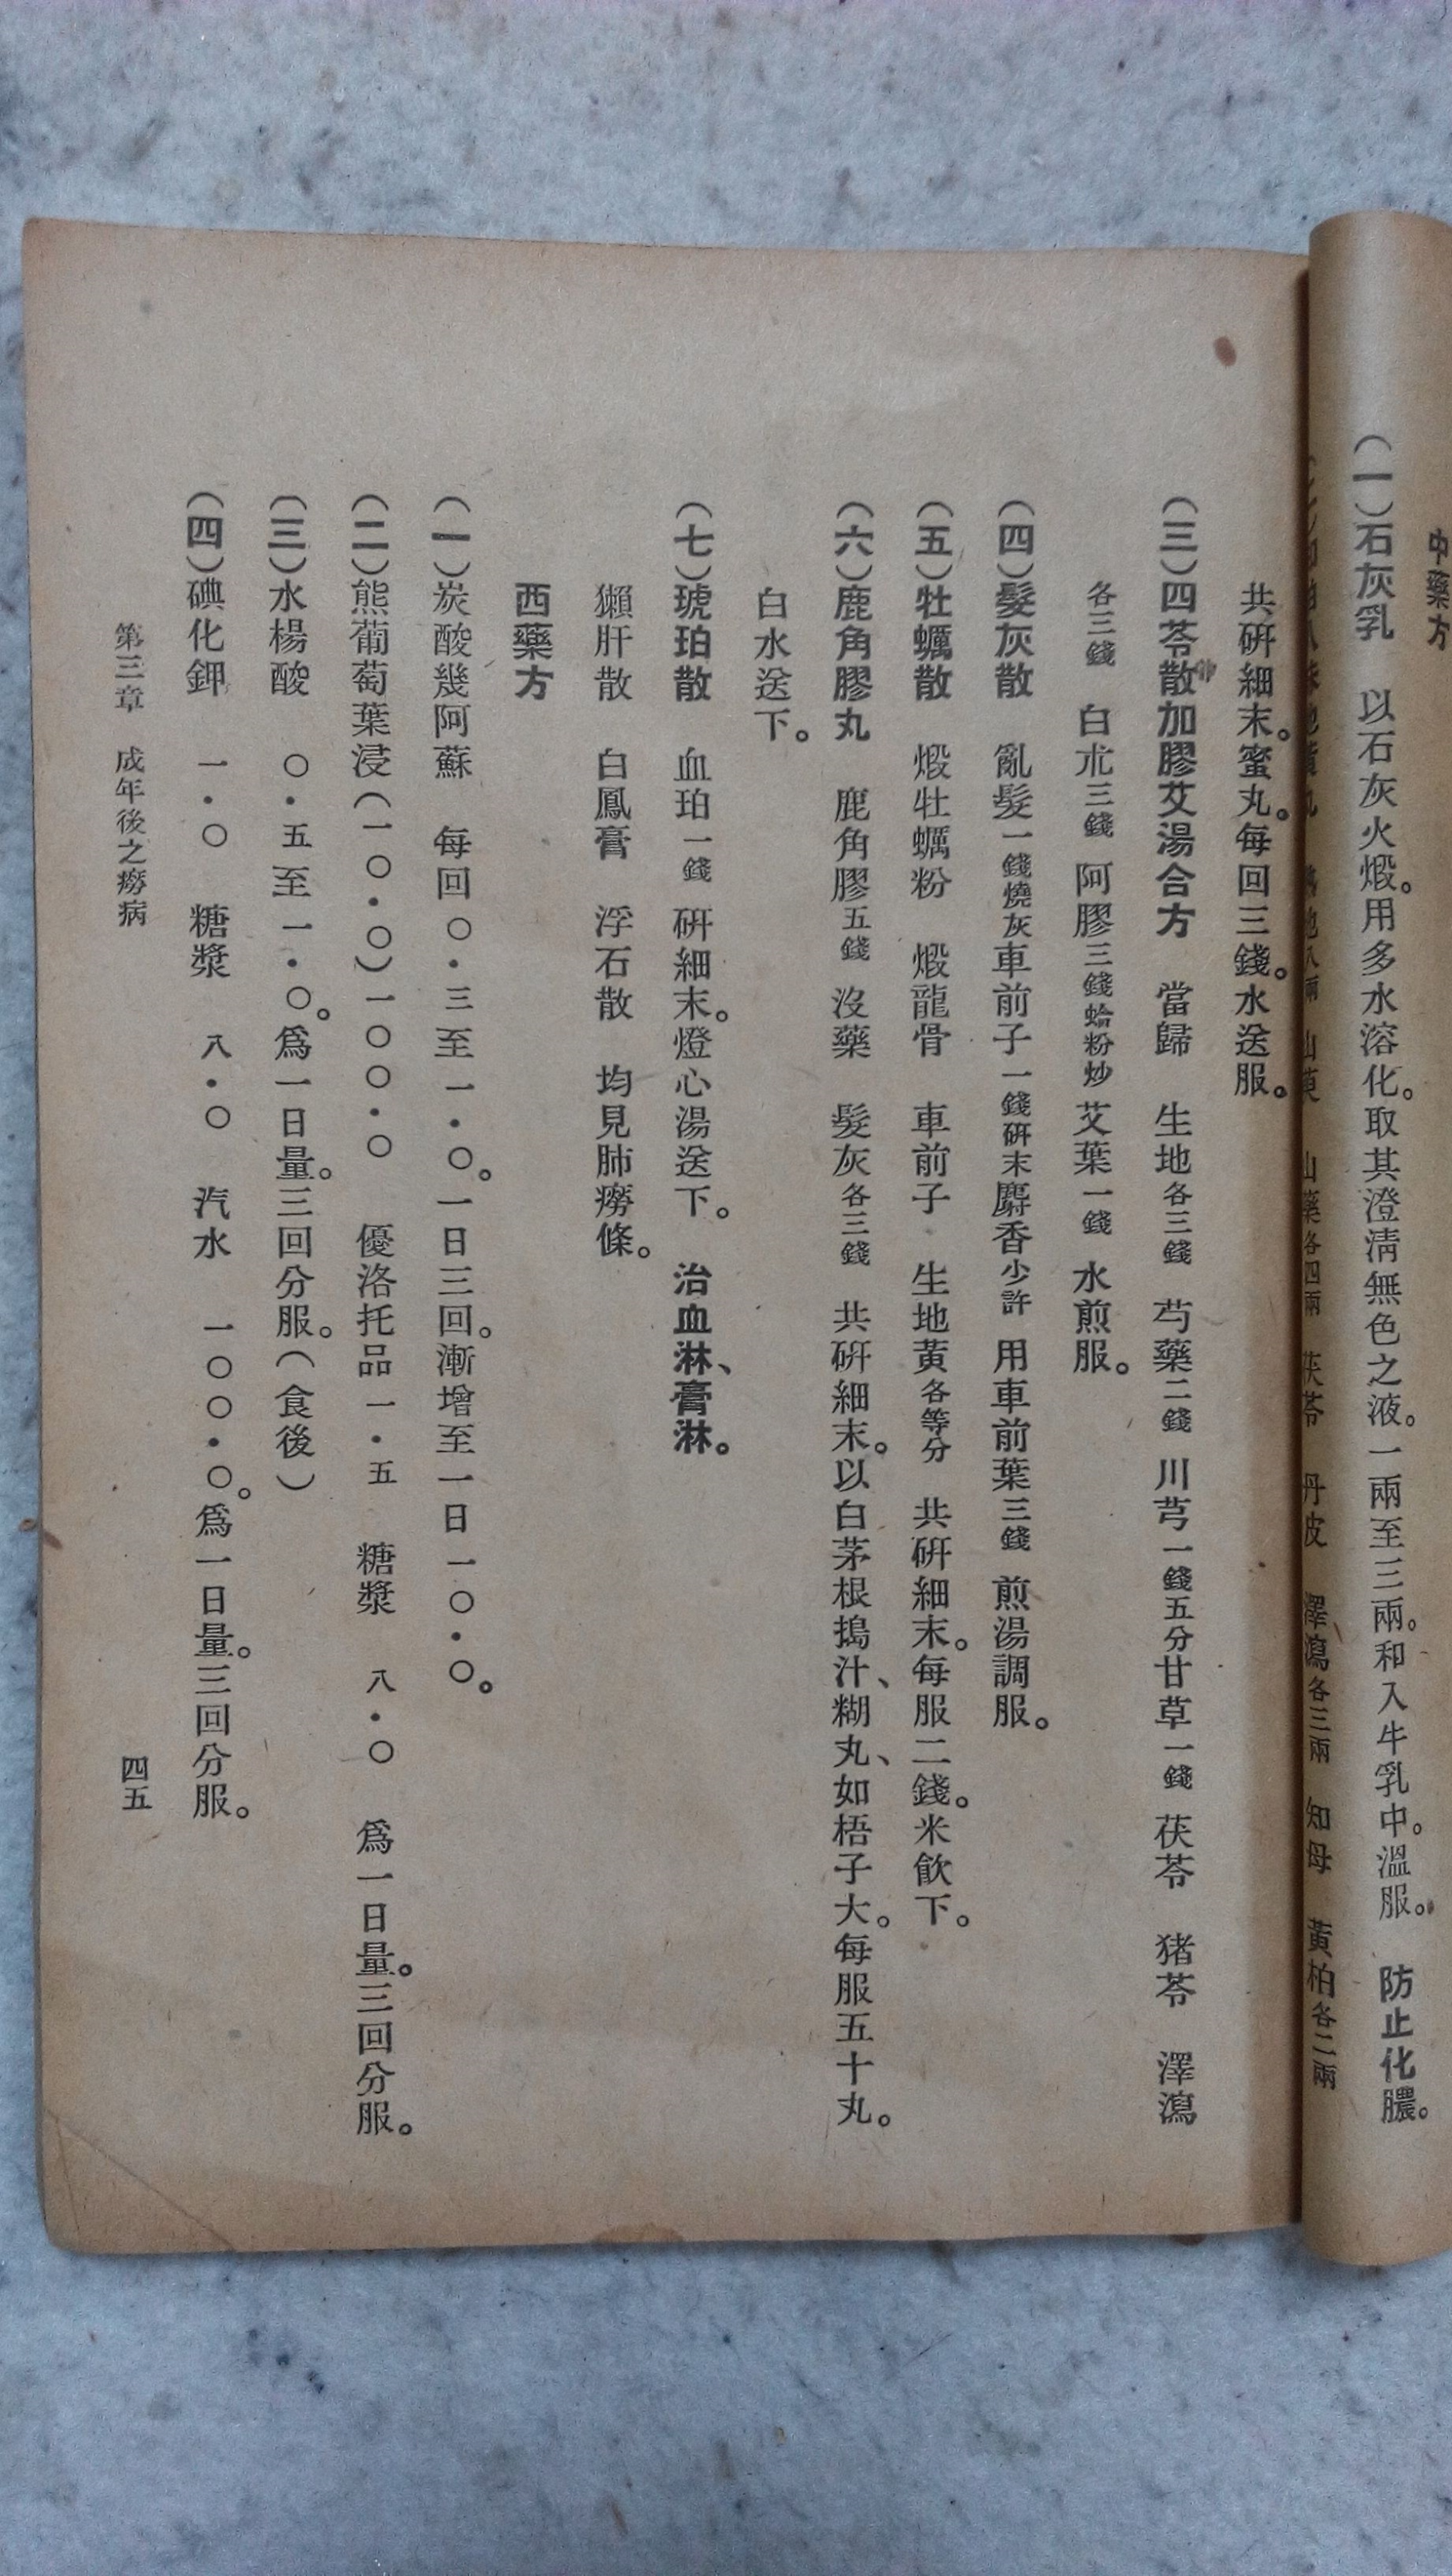 中藥方
(一)石灰乳　以石灰火煅。用多水溶化。取其澄淸無色之液。一兩至三兩。和入牛乳中。溫服。　防止化膿。
山藥各四兩　茯苓　丹皮　澤瀉各三兩　知母　黃柏各二兩
共硏細末。蜜丸。每回三錢。水送服。
(三)四苓散加膠艾湯合方　當歸　生地各三錢　芍藥二錢　川芎一錢五分甘草一錢　茯苓　猪苓　澤瀉
各三錢　白朮三錢　阿膠三錢蛤粉炒　艾葉一錢　水煎服。
(四)髮灰散　亂髮一錢燒灰車前子一錢硏末麝香少許　用車前葉三錢　煎湯調服。
(五)牡蠣散　煅牡蠣粉　煅龍骨　車前子　生地黃各等分　共硏細末。每服二錢。米飮下。
(六)鹿角膠丸　鹿角膠五錢　沒藥　髮灰各三錢　共硏細末。以白茅根搗汁、糊丸、如梧子大。每服五十丸。
白水送下。
(七)琥珀散　血珀一錢　硏細末。燈心湯送下。　治血淋、膏淋。
獺肝散　白鳳膏　浮石散　均見肺癆條。
西藥方
(一)炭酸幾阿蘇　每回〇・三至一・〇。一日三回。漸增至一日一〇・〇。
(二)熊葡萄葉浸(一〇・〇)一〇〇・〇　優洛托品一・五　糖漿　八・〇　爲一日量。三回分服。
(三)水楊酸　〇・五至一・〇。爲一日量。三回分服。(食後)
(四)碘化鉀　一・〇　糖漿　八・〇　汽水　一〇〇・〇。爲一日量。三回分服。
第三章　成年後之癆病　四五